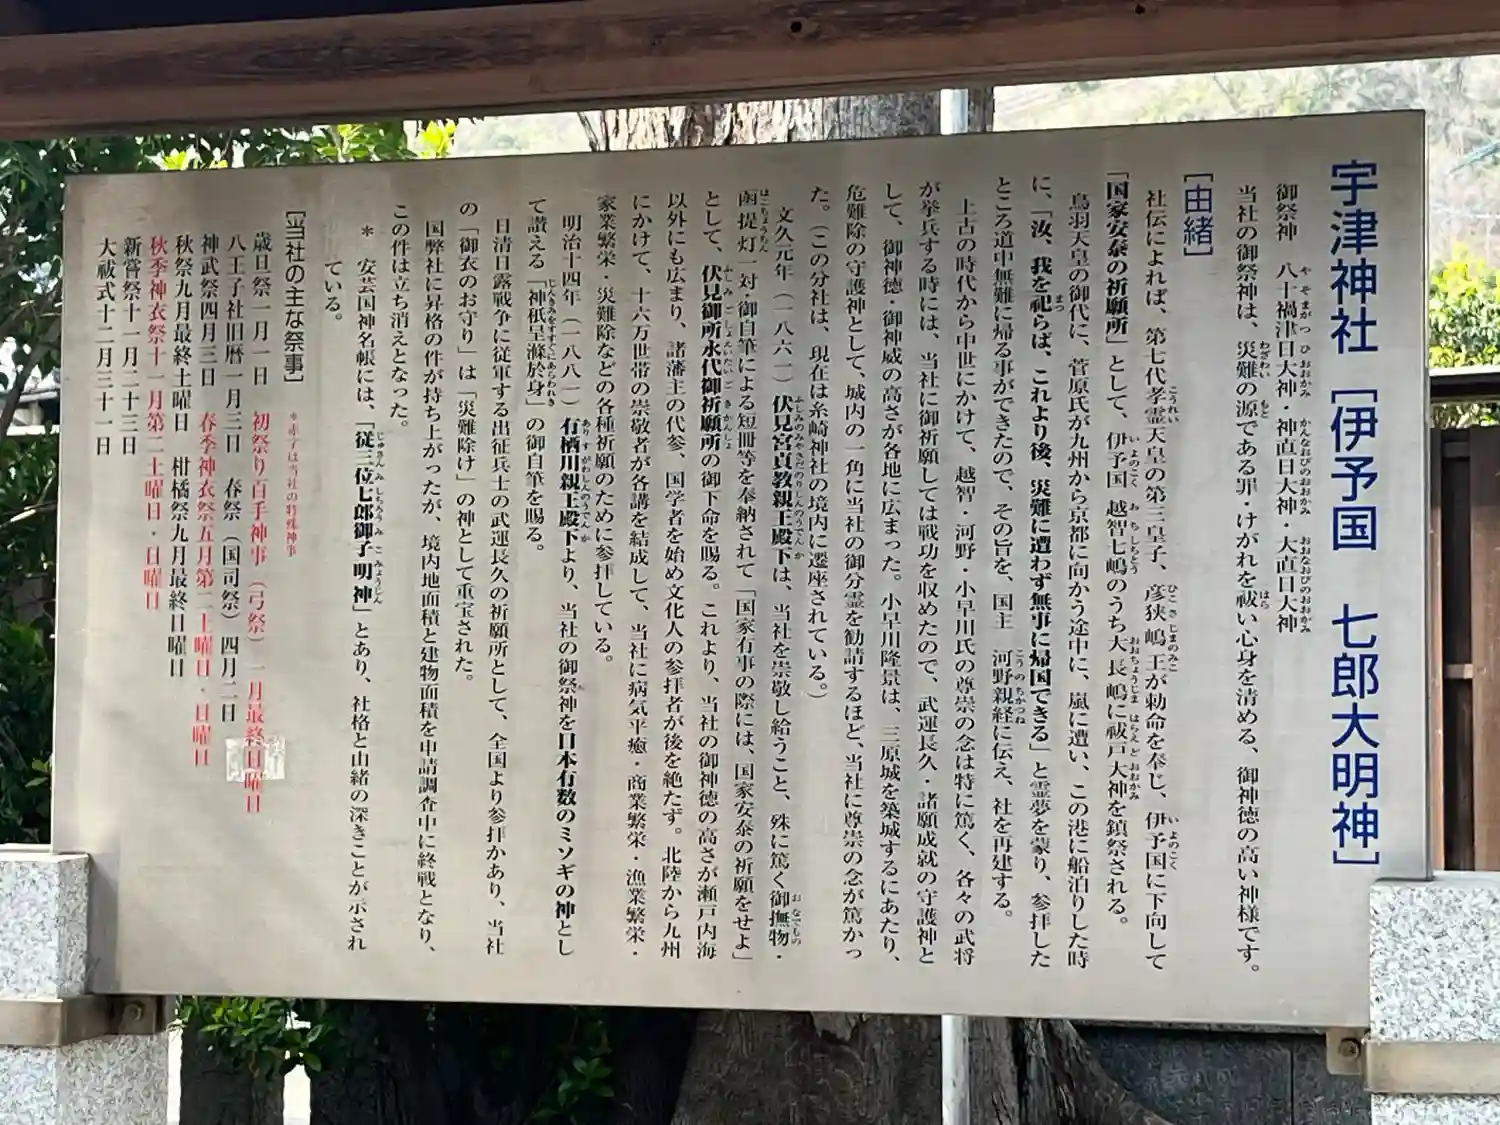 宇津神社［伊予国　七郎大明神］
御祭神　八十禍津日大神・神直日大神・大直日大神
当社の御祭神は、災難の源である罪・けがれを祓い心身を清める、御神徳の高い神様です。
［由緒］
社伝によれば、第七代孝霊天皇の第三皇子、彦狭嶋王が勅命を奉じ、伊予国に下向して
「国家安泰の祈願所」として、伊予国　越智七嶋のうち大長嶋に祓戸大神を鎮祭される。
鳥羽天皇の御代に、菅原氏が九州から京都に向かう途中に、嵐に遭い、この港に船泊りした時
に、「汝、我を祀らば、これより後、災難に遭わず無事に帰国できる」と霊夢を蒙り、参拝した
ところ道中無難に帰る事ができたので、その旨を、国主　河野親経に伝え、社を再建する。
上古の時代から中世にかけて、越智・河野・小早川氏の尊崇の念は特に篤く、各々の武将
が挙兵する時には、当社に御祈願しては戦功を収めたので、武運長久・諸願成就の守護神と
して、御神徳・御神威の高さが各地に広まった。小早川隆景は、三原城を築城するにあたり、
危難除の守護神として、城内の一角に当社の御分霊を勧請するほど、当社に尊崇の念が篤かっ
た。（この分社は、現在は糸崎神社の境内に遷座されている。）
文久元年（一八六一）伏見宮貞教親王殿下は、当社を崇敬し給うこと、殊に篤く御撫物・
函提灯一対・御自筆による短冊等を奉納されて「国家有事の際には、国家安泰の祈願をせよ」
として、伏見御所永代御祈願所の御下命を賜る。これより、当社の御神徳の高さが瀬戸内海
以外にも広まり、諸藩主の代参、国学者を始め文化人の参拝者が後を絶たず。北陸から九州
にかけて、十六万世帯の崇敬者が各講を結成して、当社に病気平癒・商業繁栄・漁業繁栄・
家業繁栄・災難除などの各種祈願のために参拝している。
明治十四年（一八八一）有栖川親王殿下より、当社の御祭神を日本有数のミソギの神とし
て讃える「神祇呈滌於身」の御自筆を賜る。
日清日露戦争に従軍する出征兵士の武運長久の祈願所として、全国より参拝があり、当社
の「御衣のお守り」は「災難除け」の神として重宝された。
国弊社に昇格の件が持ち上がったが、境内地面積と建物面積を申請調査中に終戦となり、
この件は立ち消えとなった。
＊　安芸国神名帳には、「従三位七郎御子明神」とあり、社格と由緒の深きことが示され
ている。
［当社の主な祭事］　＊赤字は当社の特殊神事
歳旦祭一月一日　初祭り百手神事（弓祭）一月最終日曜日
八王子社旧暦一月三日　春祭（国司祭）四月二日
神武祭四月三日　春季神衣祭五月第二土曜日・日曜日
秋祭九月最終土曜日　柑橘祭九月最終日曜日
秋季神衣祭十一月第二土曜日・日曜日
新嘗祭十一月二十三日
大祓式十二月三十一日